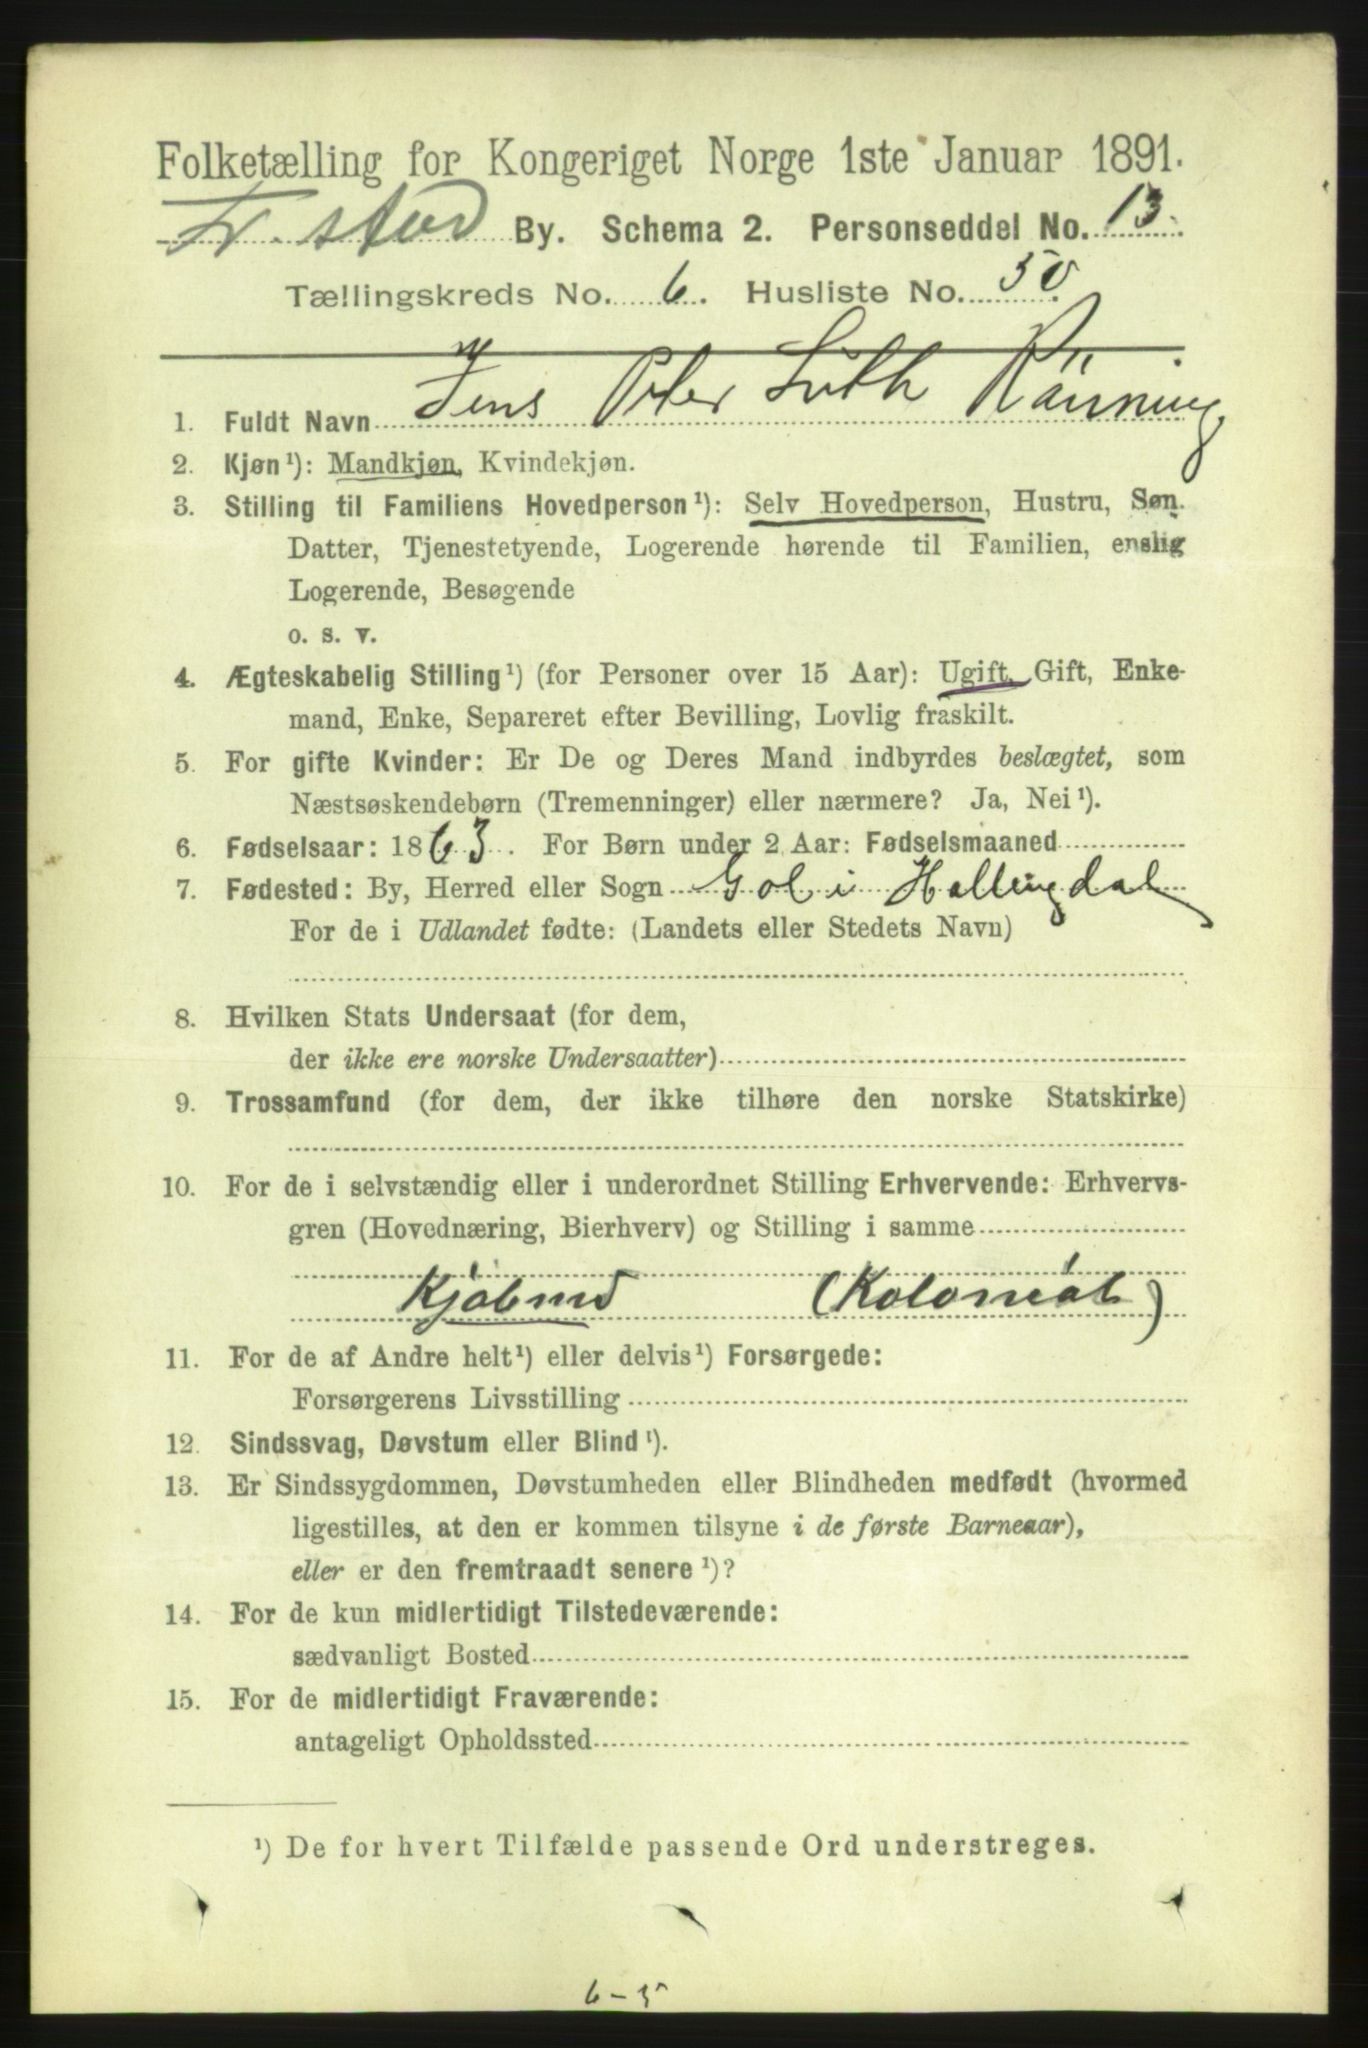 Folketælling for Kongeriget Norge 1ste Januar 1891.
Fr.stad By. Schema 2. Personseddel No. 13.
Tællingskreds No. 6. Husliste No. 50.
1. Fuldt Navn Jens Peter Lüth Rönning
2. Kjøn¹): Mandkjøn, Kvindekjøn.
3. Stilling til Familiens Hovedperson¹): Selv Hovedperson, Hustru, Søn.
Datter, Tjenestetyende, Logerende hørende til Familien, enslig
Logerende, Besøgende
o. s. v.
4. Ægteskabelig Stilling¹) (for Personer over 15 Aar): Ugift, Gift, Enke-
mand, Enke, Separeret efter Bevilling, Lovlig fraskilt.
5. For gifte Kvinder: Er De og Deres Mand indbyrdes beslægtet, som
Næstsøskendebørn (Tremenninger) eller nærmere? Ja, Nei¹).
6. Fødselsaar: 1863. For Børn under 2 Aar: Fødselsmaaned
7. Fødested: By, Herred eller Sogn Gol i Hallingdal
For de i Udlandet fødte: (Landets eller Stedets Navn)
8. Hvilken Stats Undersaat (for dem,
der ikke ere norske Undersaatter)
9. Trossamfund (for dem, der ikke tilhøre den norske Statskirke)
10. For de i selvstændig eller i underordnet Stilling Erhvervende: Erhvervs-
gren (Hovednæring, Bierhverv) og Stilling i samme
Kjøbmd (Kolonial)
11. For de af Andre helt¹) eller delvis¹) Forsørgede:
Forsørgerens Livsstilling
12. Sindssvag, Døvstum eller Blind¹).
13. Er Sindssygdommen, Døvstumheden eller Blindheden medfødt (hvormed
ligestilles, at den er kommen tilsyne i de første Barneaar),
eller er den fremtraadt senere¹)?
14. For de kun midlertidigt Tilstedeværende:
sædvanligt Bosted
15. For de midlertidigt Fraværende:
antageligt Opholdssted
¹) De for hvert Tilfælde passende Ord understreges.
6-5